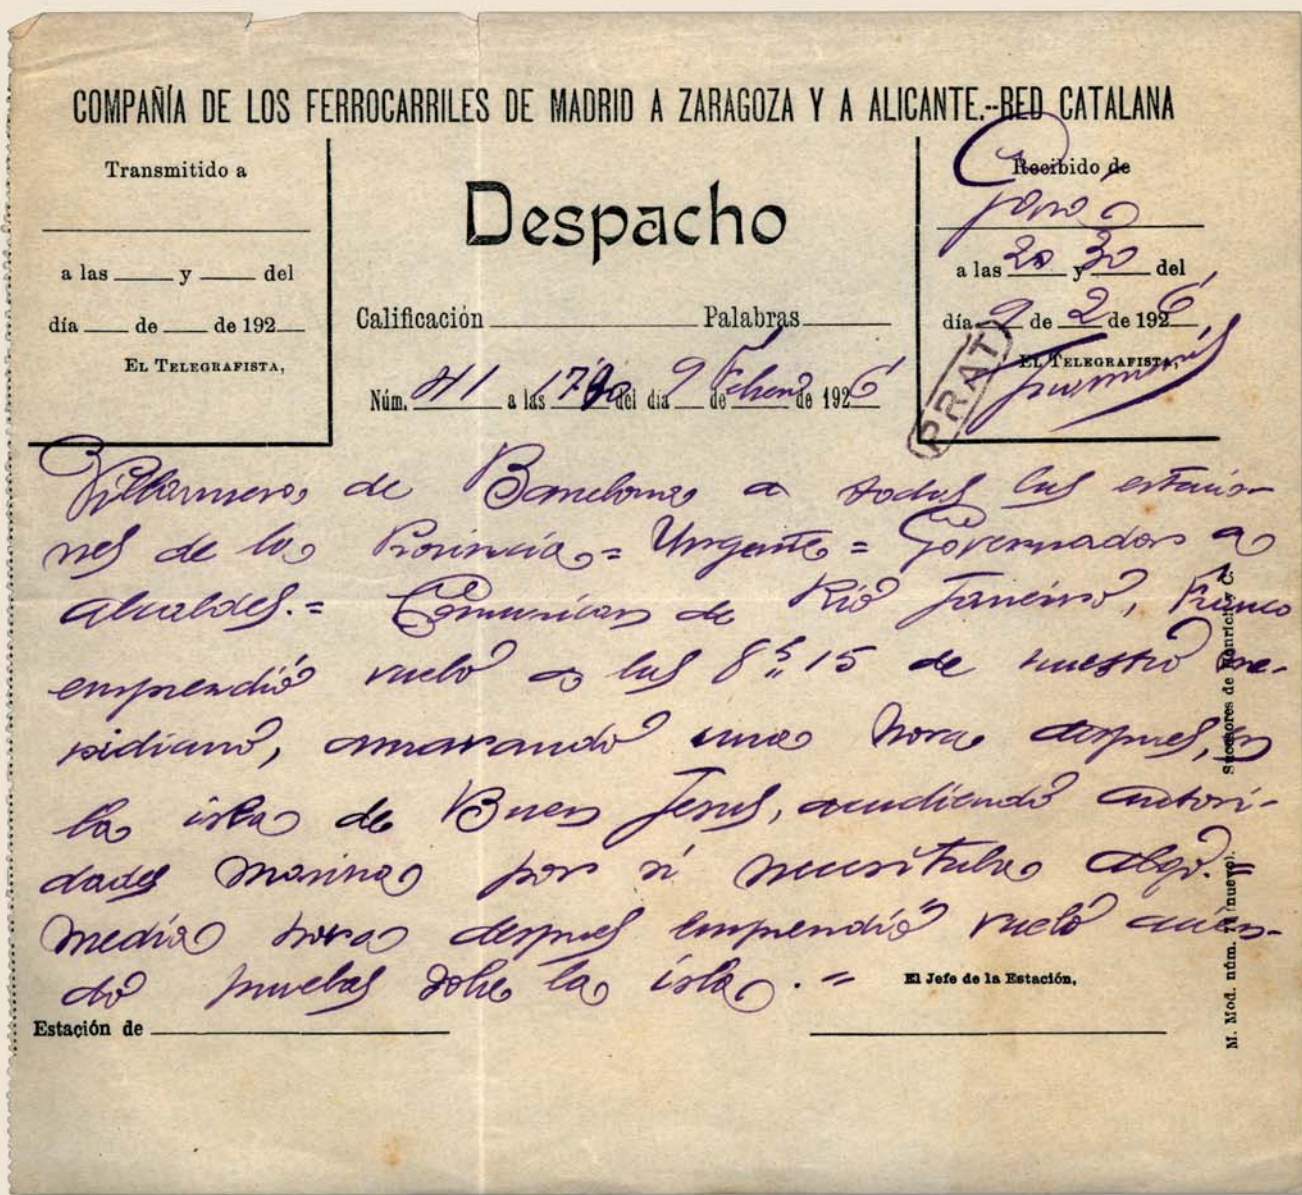 COMPAÑÍA DE LOS FERROCARRILES DE MADRID A ZARAGOZA Y A ALICANTE.--RED CATALANA
Transmitido a
a las ____ y ____ del
día ____ de ____ de 192__
EL TELEGRAFISTA,
Despacho
Calificación ____ Palabras ____
Núm. 41 a las 17 del día 9 de Febrero de 1926
Recibido de
a las 20 y 30 del
día 9 de 2 de 1926
EL TELEGRAFISTA,
PRAT
de Barcelona a todas las estacio-
nes de la Provincia = Urgente = Governador a
alcaldes. = Comunican de Rio Janeiro, Franco
emprendió vuelo a las 8h 15 de nuestro me-
ridiano, amarando una hora despues, en
la isla de Buen Jesus, acudiendo autori-
dades marina por si necesitaba algo. =
media hora despues emprendió vuelo acien-
do pruebas sobre la isla. =
El Jefe de la Estación,
Estación de
M. Mod. núm. (nuevo). Sucesores de Henrich y C.